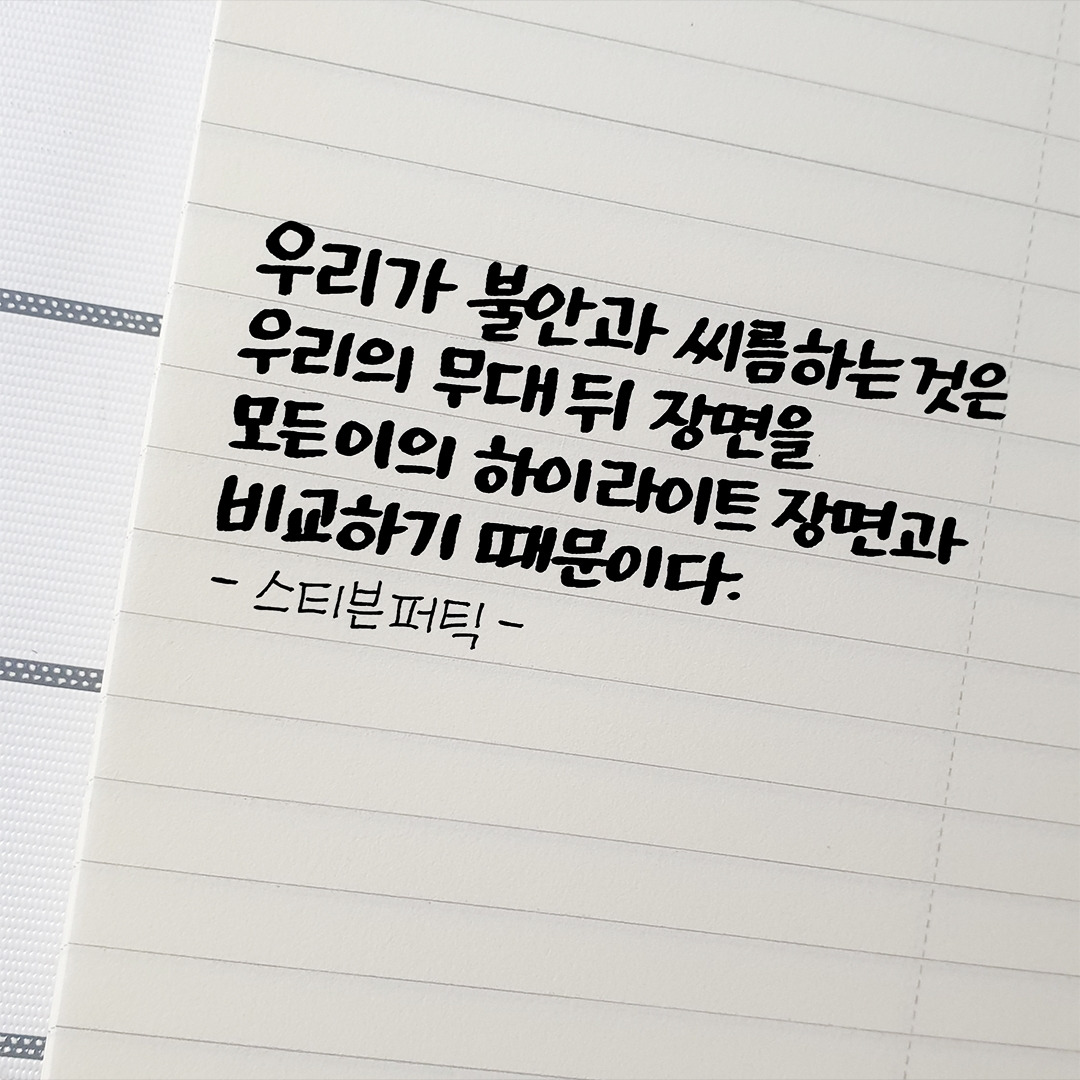 우리가 불안과 씨름하는것은
우리의 무대 뒤 장면을
모든이의 하이라이트 장면과
비교하기 때문이다.
- 스티븐퍼틱 -